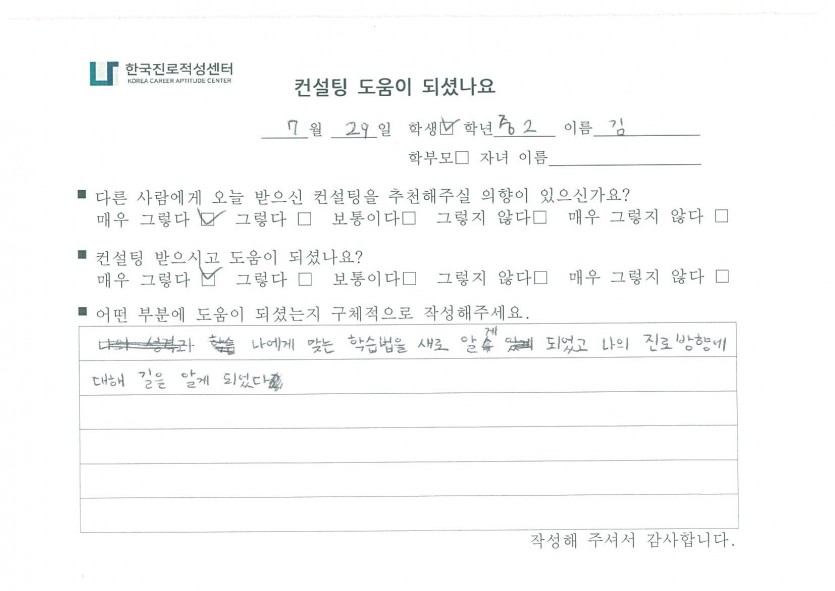 한국진로적성센터
KOREA CAREER APTITUDE CENTER
컨설팅 도움이 되셨나요
7 월 29 일 학생☑ 학년 중2 이름 김
학부모□ 자녀 이름
■ 다른 사람에게 오늘 받으신 컨설팅을 추천해주실 의향이 있으신가요?
매우 그렇다 ☑ 그렇다 □ 보통이다□ 그렇지 않다□ 매우 그렇지 않다 □
■ 컨설팅 받으시고 도움이 되셨나요?
매우 그렇다 ☑ 그렇다 □ 보통이다□ 그렇지 않다□ 매우 그렇지 않다 □
■ 어떤 부분에 도움이 되셨는지 구체적으로 작성해주세요.
나에게 맞는 학습법을 새로 알게 되었고 나의 진로방향에
대해 길은 알게 되었다
작성해 주셔서 감사합니다.